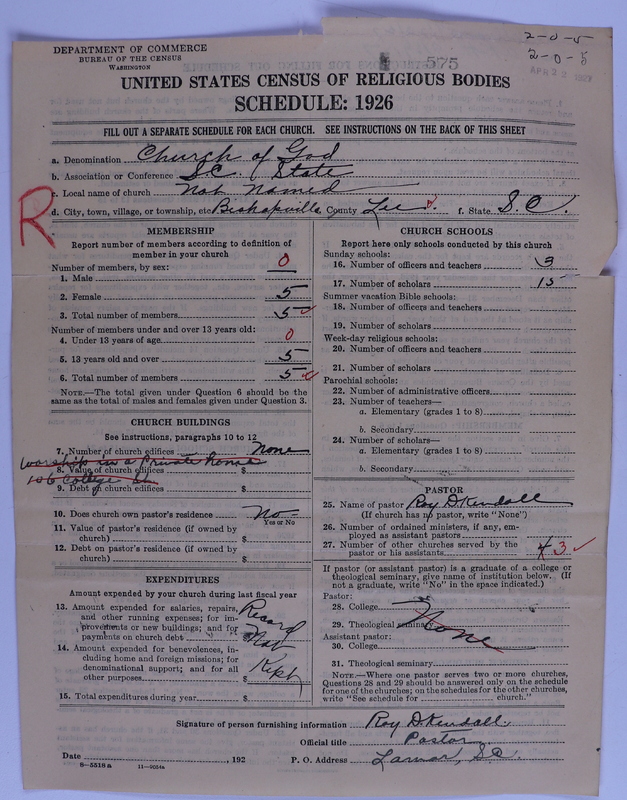 2-0-5
2-0-5
575
APR 22 1927
DEPARTMENT OF COMMERCE
BUREAU OF THE CENSUS
WASHINGTON
UNITED STATES CENSUS OF RELIGIOUS BODIES
SCHEDULE: 1926
FILL OUT A SEPARATE SCHEDULE FOR EACH CHURCH. SEE INSTRUCTIONS ON THE BACK OF THIS SHEET
a. Denomination Church of God
b. Association or Conference S.C. State
c. Local name of church Not Named
d. City, town, village, or township, etc Bishopville County Lee f. State S.C.
R
MEMBERSHIP
Report number of members according to definition of
member in your church
Number of members, by sex:
1. Male 0
2. Female 5
3. Total number of members 5
Number of members under and over 13 years old:
4. Under 13 years of age 0
5. 13 years old and over 5
6. Total number of members 5
NOTE.—The total given under Question 6 should be
same as the total of males and females given under Question 3.
CHURCH BUILDINGS
See instructions, paragraphs 10 to 12
7. Number of church edifices None
worship in a Private home
8. Value of church edifices $
106 College St
9. Debt on church edifices $
10. Does church own pastor's residence No
Yes or No
11. Value of pastor's residence (if owned by
church) $
12. Debt on pastor's residence (if owned by
church) $
EXPENDITURES
Amount expended by your church during last fiscal year
13. Amount expended for salaries, repairs,
and other running expenses; for im-
provements or new buildings; and for
payments on church debt Record
Not
14. Amount expended for benevolences, in-
cluding home and foreign missions; for
denominational support; and for all
other purposes $ Kept
15. Total expenditures during year $
CHURCH SCHOOLS
Report here only schools conducted by this church
Sunday schools:
16. Number of officers and teachers 3
17. Number of scholars 15
Summer vacation Bible schools:
18. Number of officers and teachers
19. Number of scholars
Week-day religious schools:
20. Number of officers and teachers
21. Number of scholars
Parochial schools:
22. Number of administrative officers
23. Number of teachers—
a. Elementary (grades 1 to 8)
b. Secondary
24. Number of scholars—
a. Elementary (grades 1 to 8)
b. Secondary
PASTOR
25. Name of pastor Roy D. Kendall
(If church has no pastor, write "None")
26. Number of ordained ministers, if any, em-
ployed as assistant pastors
27. Number of other churches served by the
pastor or his assistants 4 3
If pastor (or assistant pastor) is a graduate of a college or
theological seminary, give name of institution below. (If
not a graduate, write "No" in the space indicated.)
Pastor:
28. College
29. Theological seminary None
Assistant pastor:
30. College
31. Theological seminary
NOTE.—Where one pastor serves two or more churches,
Questions 28 and 29 should be answered only on the schedule
for one of the churches; on the schedules for the other churches,
write "See schedule for church."
Signature of person furnishing information Roy D. Kendall
Official title Pastor
Date , 192 P. O. Address Lamar, S.C.
8—5518 a 11—9034a